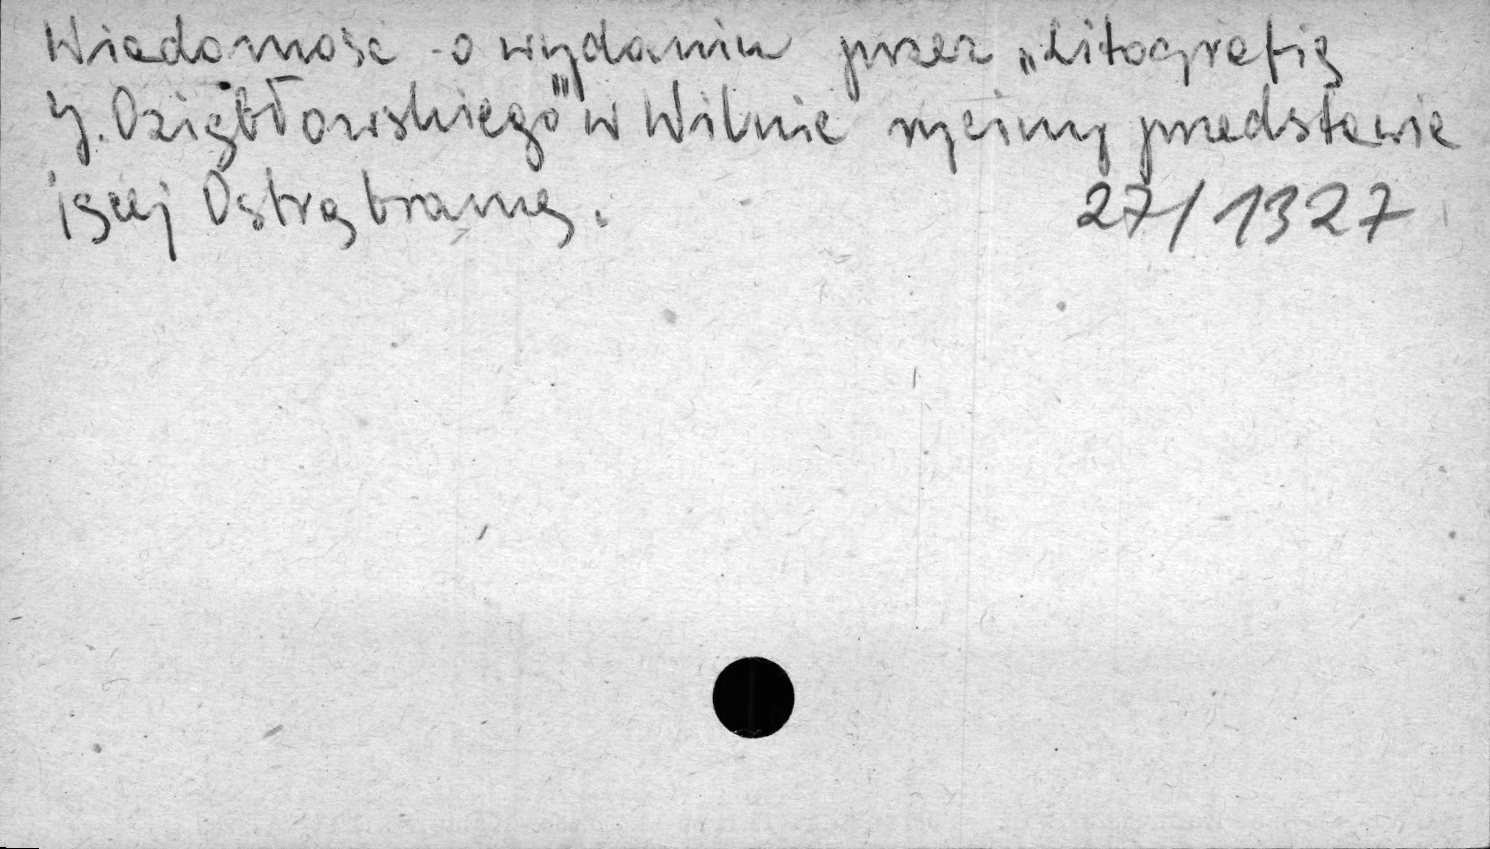 Wiadomość o wydaniu przez „Litografię
J. Oziębłowskiego" w Wilnie ryciny przedstawia
jącej Ostrą bramę.
27/1327